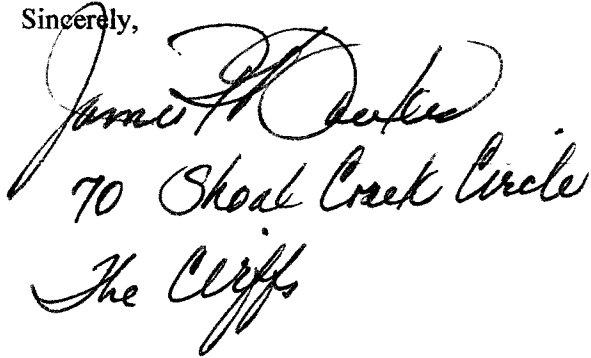 Sincerely,
James
70 Shoal Creek Circle
The Cliffs